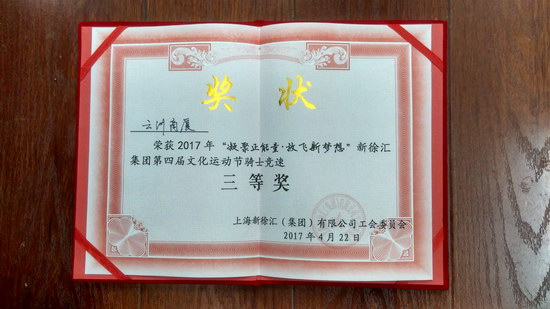 奖 状
云洲商厦
荣获2017年“凝聚正能量·放飞新梦想”新徐汇
集团第四届文化运动节骑士竞速
三等奖
上海新徐汇（集团）有限公司工会委员会
2017年4月22日